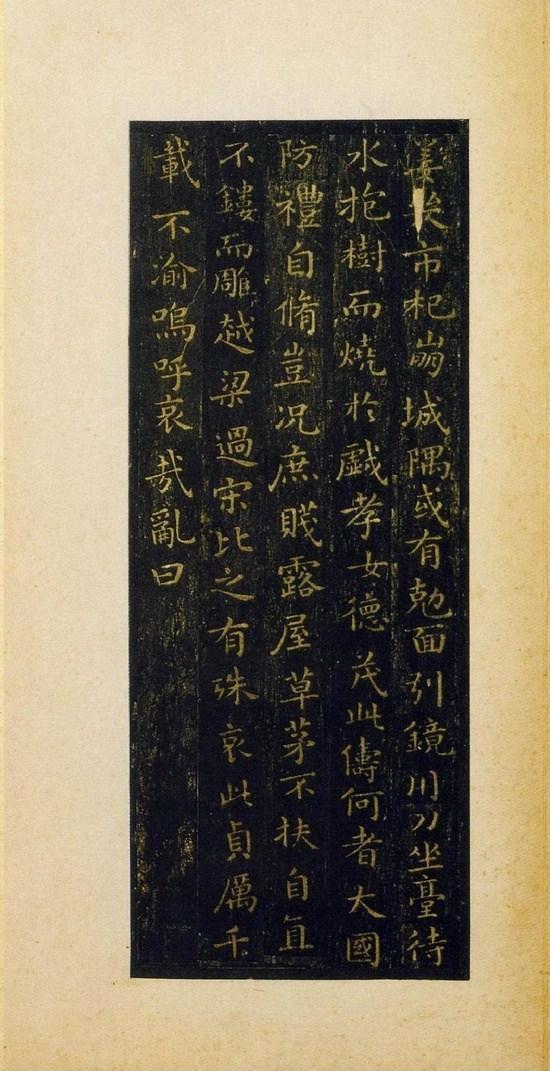 姜市杞崩城隅或有勊面引鏡川刀坐臺待
水抱樹而燒於戲孝女德茂此儔何者大國
防禮自脩豈况庶賤露屋草茅不扶自直
不鏤而雕越梁過宋比之有殊哀此貞厲千
載不渝嗚呼哀哉亂曰